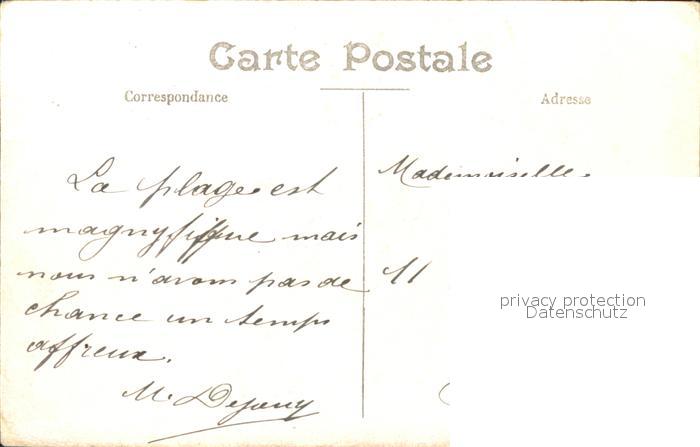 Carte Postale
Correspondance
Adresse
La plage est
magnyfique mais
nous n'avons pas de
chance un temps
affreux.
M.
Mademoiselle
11
privacy protection
Datenschutz